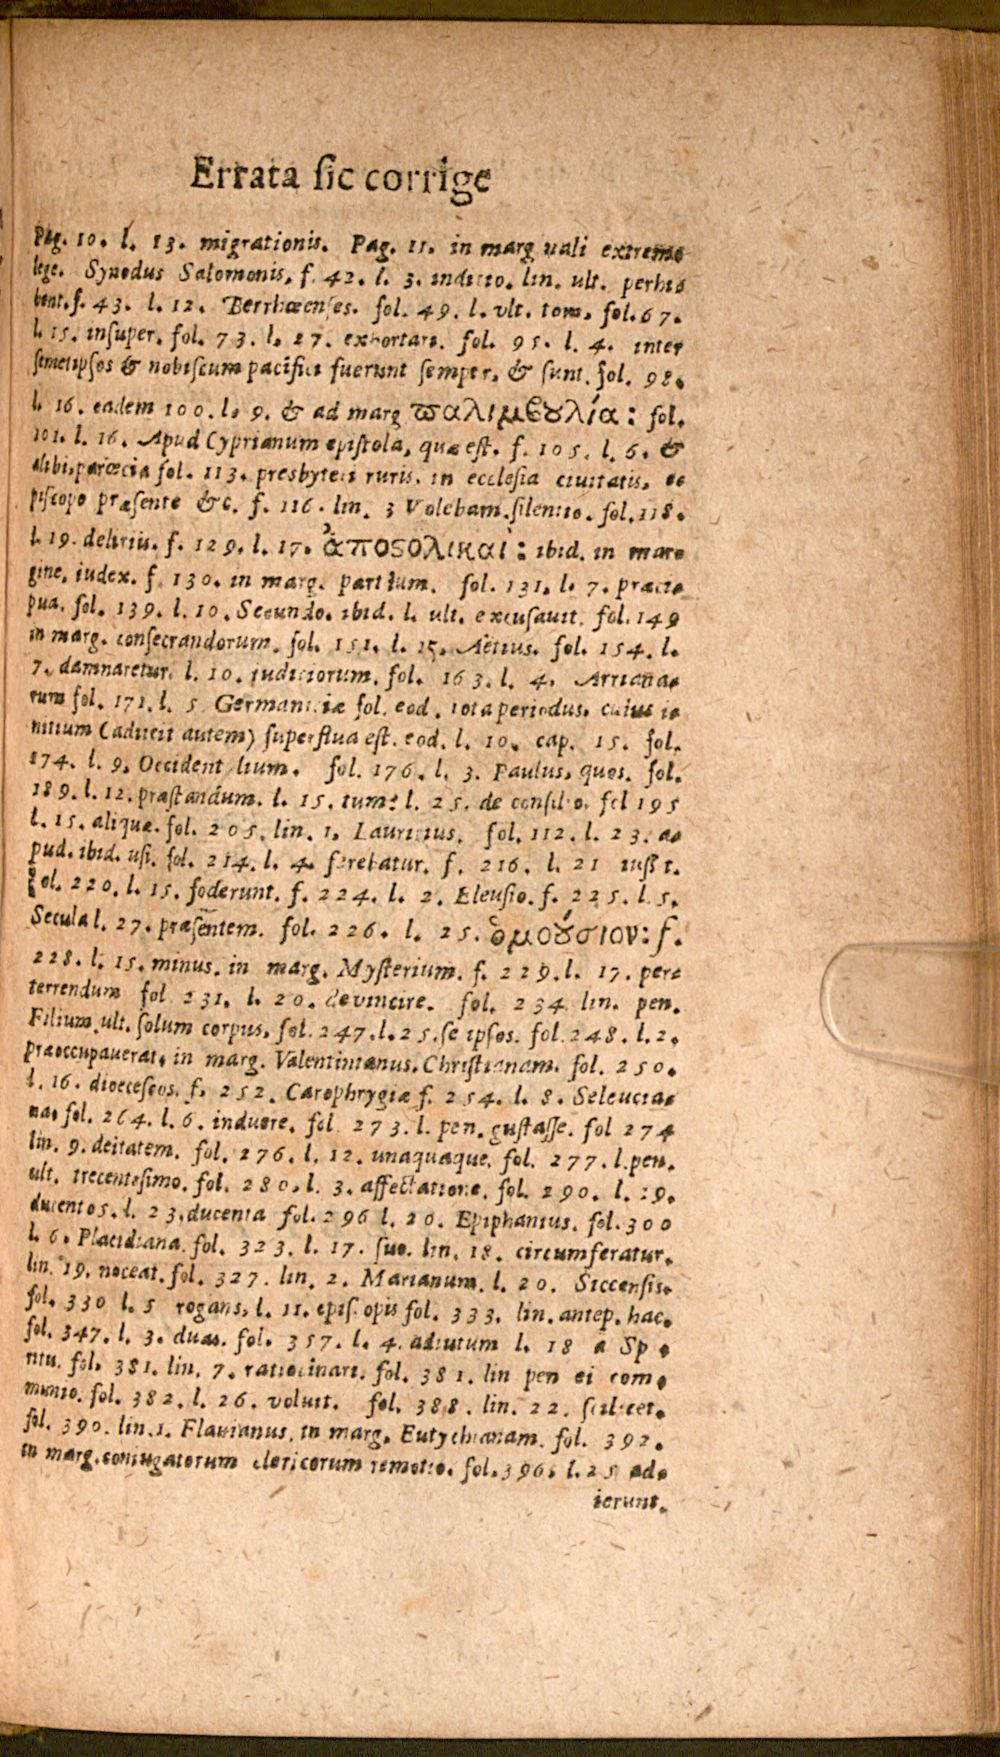 Errata ſic corrige
Pag. 10. l. 13. migrationis. Pag. 11. in marg uali extremo
lege. Synodus Salomonis, f. 42. l. 3. indicto. lin. ult. perhi⸗
bent. f. 43. l. 12. Berrhœenſes. fol. 49. l. vlt. tom. fol. 67.
l. 15. inſuper. fol. 73. l. 27. exhortari. fol. 95. l. 4. inter
ſemetipſos & nobiſcum pacifici fuerunt ſemper, & ſunt. fol. 98.
l. 16. eadem 100. l. 9. & ad marg ϖαλιμβȣλία: fol.
101. l. 16. Apud Cyprianum epiſtola, quæ eſt. f. 105. l. 6. &
alibi, parœcia fol. 113. presbyteri ruris. in eccleſia ciuitatis, e⸗
piſcopo præſente &c. f. 116. lin. 3 Volebam. ſilentio. fol. 118.
l. 19. delirus. f. 129. l. 17. ἀποϛολικαὶ: ibid. in mar⸗
gine, iudex. f 130. in marg. partium. fol. 131. l. 7. præci⸗
pua. fol. 139. l. 10. Secundo. ibid. l. ult. excuſauit. fol. 149
in marg. conſecrandorum. fol. 151. l. 15. Aëtius. fol. 154. l.
7. damnaretur. l. 10. iudiciorum. fol. 163. l. 4. Arriano⸗
rum fol. 171. l. 5 Germaniciæ fol. eod. tota periodus, cuius i⸗
nitium (adiicit autem) ſuperflua eſt. eod. l. 10. cap. 15. fol.
174. l. 9. Occident lium. fol. 176. l. 3. Paulus, quos. fol.
189. l. 12. præſtandum. l. 15. tum: l. 25. de conſilio. fol 195
l. 15. aliquæ. fol. 205. lin. 1. Lauricius. fol. 112. l. 23. a⸗
pud. ibid. uſi. fol. 214. l. 4. ferebatur. f. 216. l. 21 iuſſit.
fol. 220. l. 15. foderunt. f. 224. l. 2. Eleuſio. f. 225. l. 5.
Secula l. 27. præſentem. fol. 226. l. 25. ὁμοȣ́σιον: f.
228. l. 15. minus. in marg. Myſterium. f. 229. l. 17. per⸗
terrendum fol 231. l. 20. devincire. fol. 234 lin. pen.
Filium. ult. ſolum corpus. fol. 247. l. 25. ſe ipſos. fol. 248. l. 2.
præoccupauerat. in marg. Valentinianus. Chriſtianam. fol. 250.
l. 16. diœceſeos. f. 252. Carophrygiæ f. 254. l. 8. Seleucia⸗
na. fol. 264. l. 6. induere. fol 273. l. pen. guſtaſſe. fol 274
lin. 9. deitatem. fol. 276. l. 12. unaquaque. fol. 277. l. pen.
ult. trecentesimo. fol. 280. l. 3. affectatione. fol. 290. l. 19.
ducentos. l. 23. ducenta fol. 296 l. 20. Epiphanius. fol. 300
l. 6. Placidiana. fol. 323. l. 17. ſuo. lin. 18. circumferatur.
lin. 19. noceat. fol. 327. lin. 2. Marianum. l. 20. Siccenſis.
fol. 330 l. 5 rogans, l. 11. epiſ opis fol. 333. lin. antep. hac.
fol. 347. l. 3. duas. fol. 357. l. 4. adiutum l. 18 a Sp⸗
ritu. fol. 381. lin. 7. ratiocinari. fol. 381. lin pen ei com⸗
munio. fol. 382. l. 26. voluit. fol. 388. lin. 22. ſcilicet.
fol. 390. lin. 1. Flauianus. in marg. Eutychianam. fol. 392.
in marg. coniugatorum clericorum remotio. fol. 396. l. 25 ad⸗
ierunt.